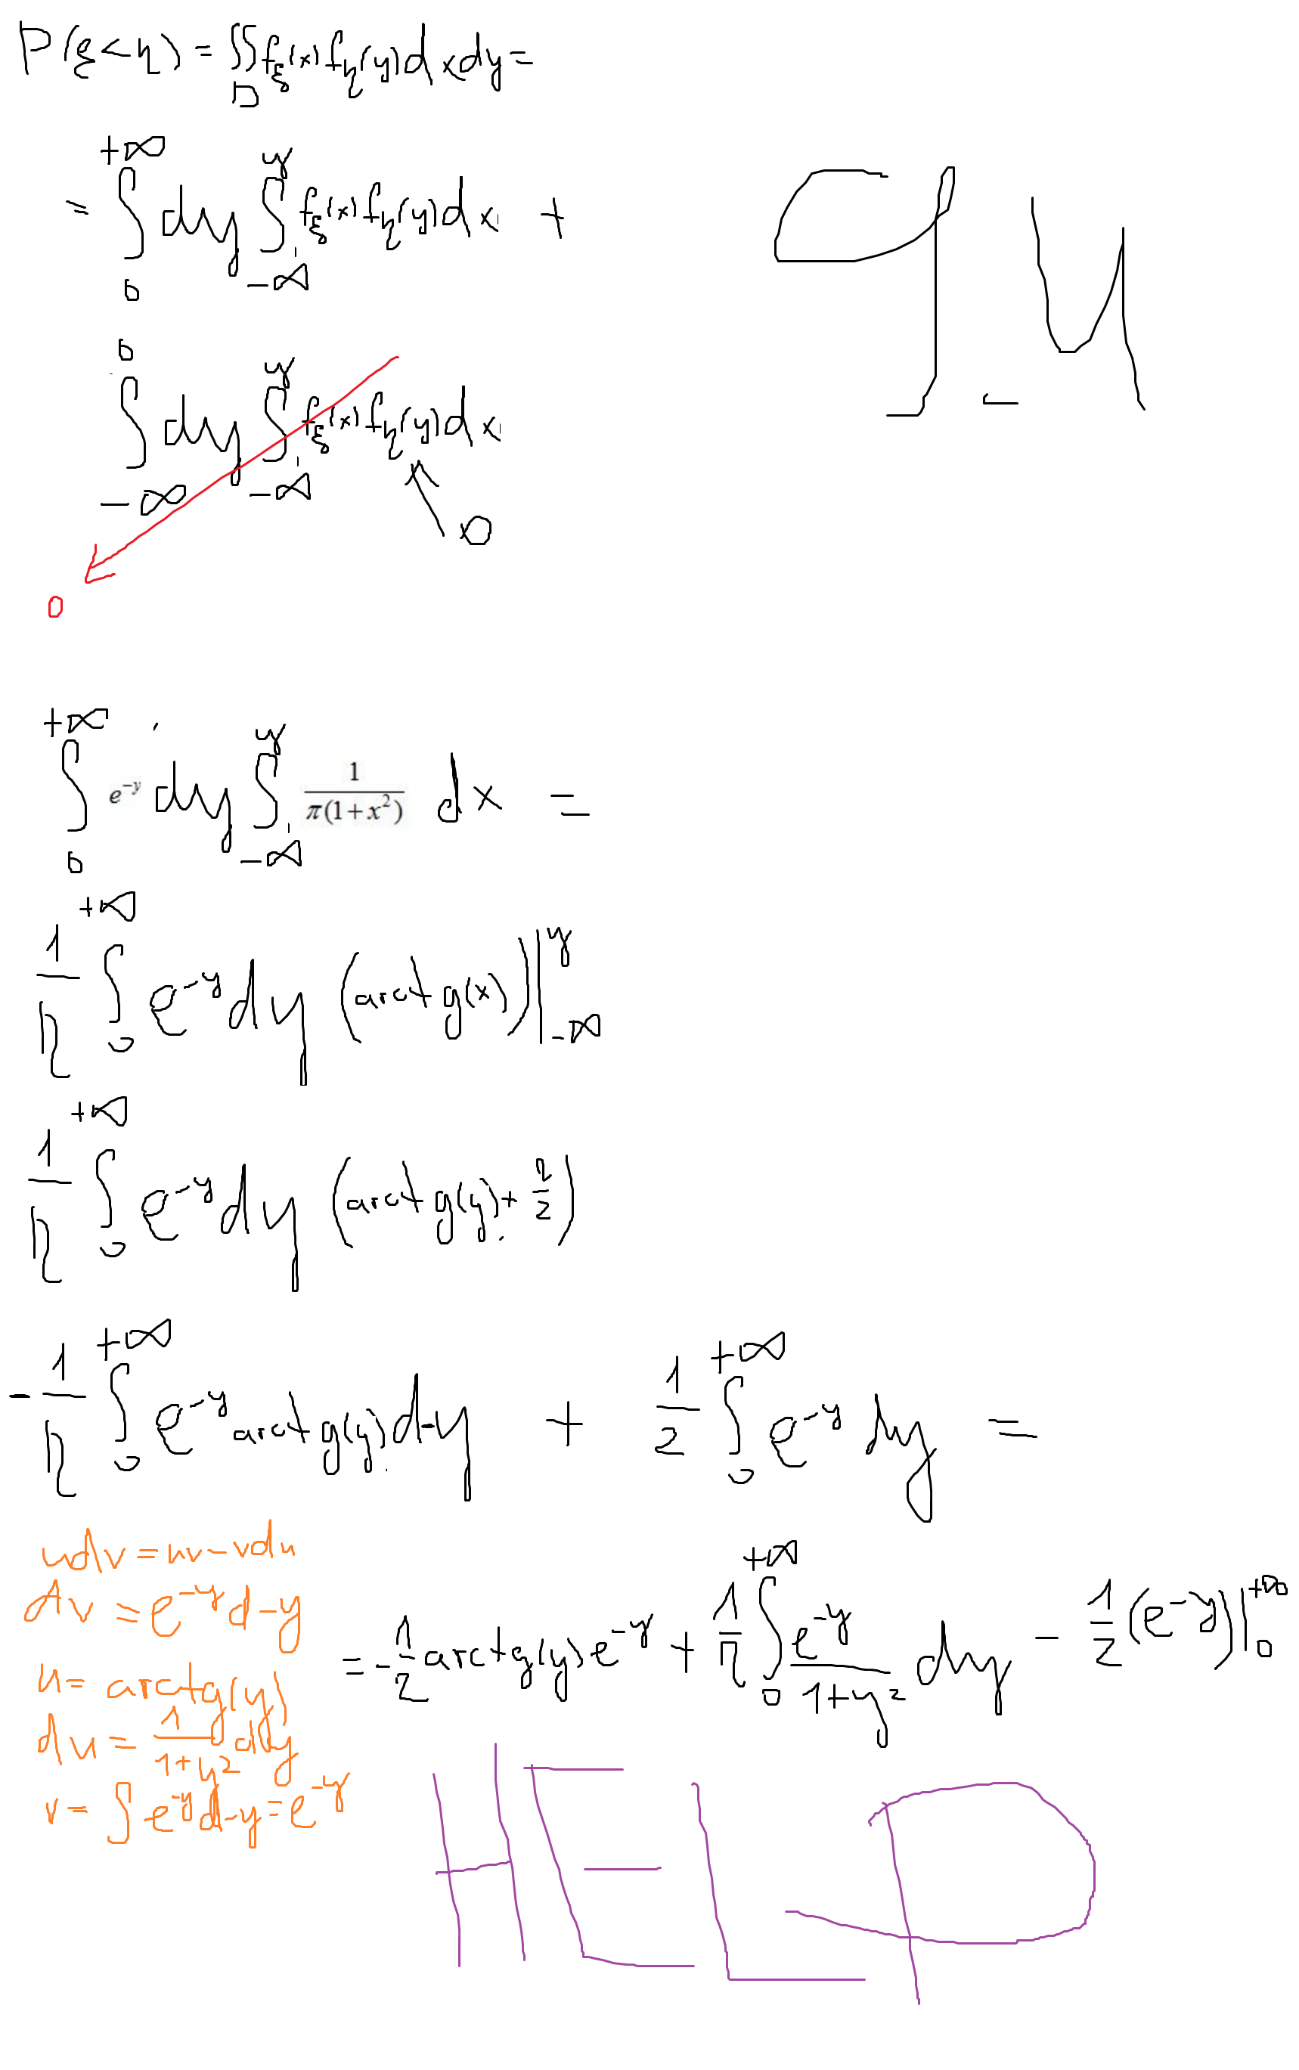 P(ξ<η) = ∬_D f_ξ(x) f_η(y) dx dy =
= ∫_0^{+∞} dy ∫_{-∞}^y f_ξ(x) f_η(y) dx +
∫_{-∞}^0 dy ∫_{-∞}^y f_ξ(x) f_η(y) dx
0
0
∫_0^{+∞} e^{-y} dy ∫_{-∞}^y 1/(π(1+x²)) dx =
1/π ∫_0^{+∞} e^{-y} dy (arctg(x))|_{-∞}^y
1/π ∫_0^{+∞} e^{-y} dy (arctg(y) + π/2)
-1/π ∫_0^{+∞} e^{-y} arctg(y) d-y + 1/2 ∫_0^{+∞} e^{-y} dy =
udv = uv - vdu
dv = e^{-y} d-y
u = arctg(y)
du = 1/(1+y²) dy
v = ∫ e^{-y} d-y = e^{-y}
= -1/2 arctg(y) e^{-y} + 1/π ∫_0^{+∞} e^{-y}/(1+y²) dy - 1/2 (e^{-y})|_0^{+∞}
HELP